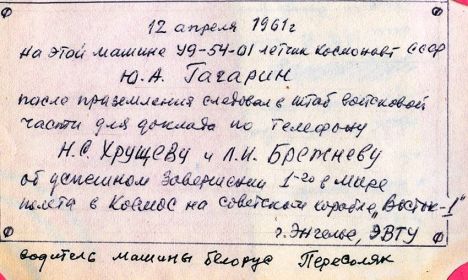 12 апреля 1961г
На этой машине У9-54-01 летчик космонавт СССР
Ю.А. Гагарин
после приземления следовал в штаб войсковой
части для доклада по телефону
Н.С. Хрущеву и Л.И. Брежневу
об успешном завершении 1-го в мире
полета в Космос на советском корабле „Восток-1"
г. Энгельс, ЭВТУ
водитель машины белорус Пересоляк